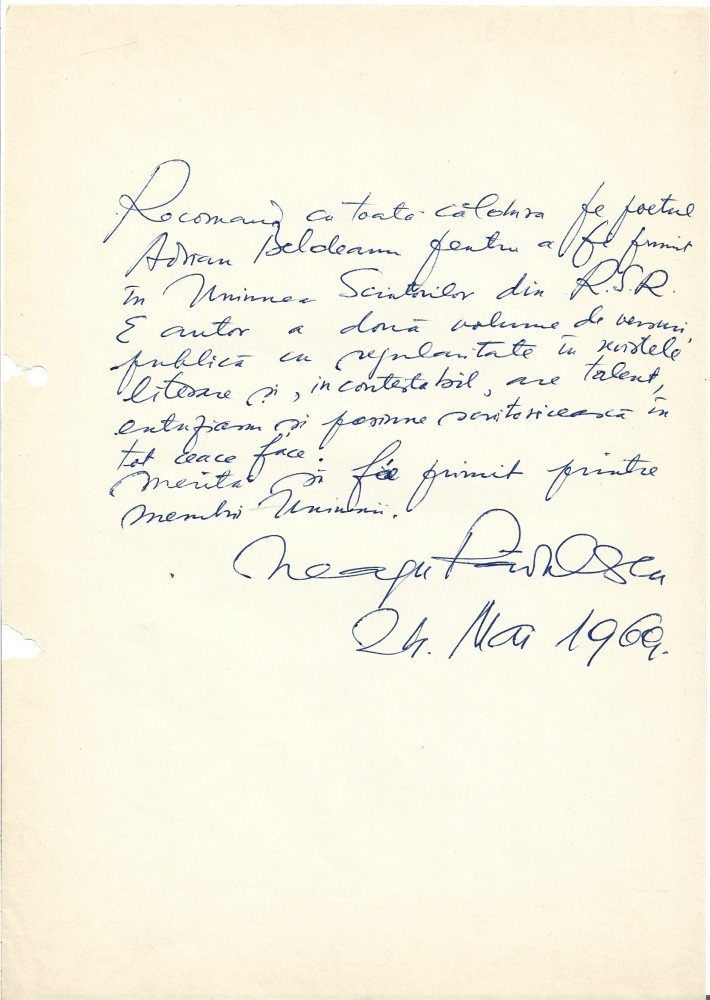 Recomand cu toată căldura pe poetul
Adrian Beldeanu pentru a fi primit
în Uniunea Scriitorilor din R.S.R.
E autor a două volume de versuri,
publică cu regularitate în revistele
literare și, incontestabil, are talent,
entuziasm și pasiune scriitoricească în
tot ceace face.
Merită să fie primit printre
membrii Uniunii.
Neagu Rădulescu
24. Mai 1969.